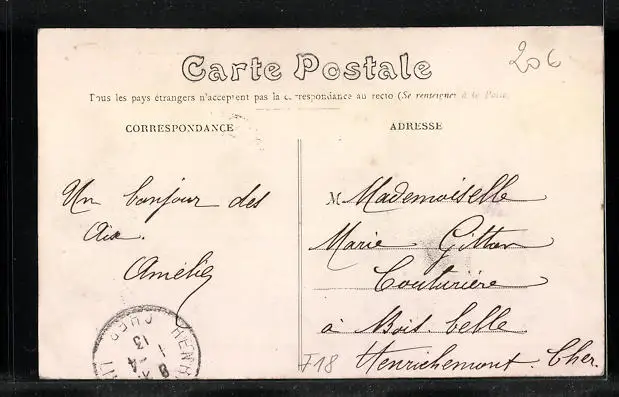 Carte Postale
20 c
Tous les pays étrangers n'acceptent pas la correspondance au recto (Se renseigner à la Poste)
CORRESPONDANCE
ADRESSE
Un bonjour des
Aix.
Amélie
M Mademoiselle
Marie Gitton
Couturière
à Bois-belle
Henrichemont. Cher.
F18
HENR
CHER
1
13